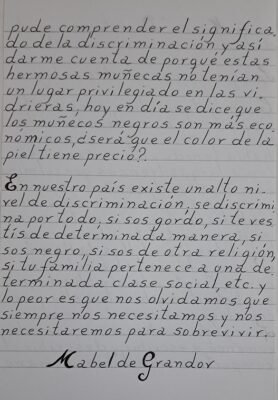 pude comprender el significa_
do de la discriminación y así
darme cuenta de porqué estas
hermosas muñecas no tenían
un lugar privilegiado en las vi_
drieras, hoy en día se dice que
los muñecos negros son más eco_
nómicos, ¿será que el color de la
piel tiene precio?.
En nuestro país existe un alto ni_
vel de discriminación, se discrimi_
na por todo, si sos gordo, si te ves_
tís de determinada manera, si
sos negro, si sos de otra religión,
si tu familia pertenece a una de_
terminada clase social, etc. y
lo peor es que nos olvidamos que
siempre nos necesitamos y nos
necesitaremos para sobrevivir.
Mabel de Grandov